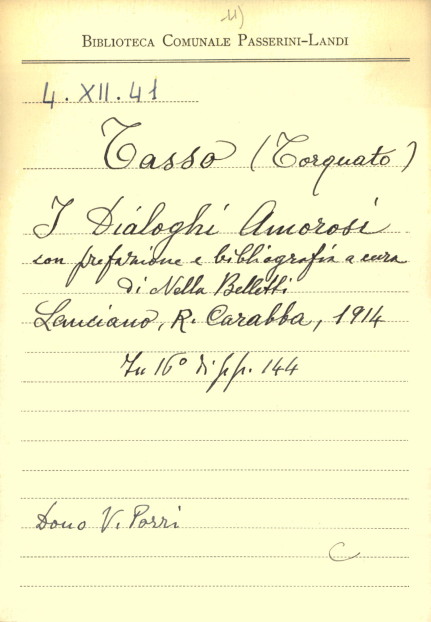 11)
BIBLIOTECA COMUNALE PASSERINI-LANDI
4. XII. 41
Tasso (Torquato)
I Dialoghi Amorosi
con prefazione e bibliografia a cura
di Nella Belletti
Lanciano, R. Carabba, 1914
In 16° di pp. 144
Dono V. Porri
C